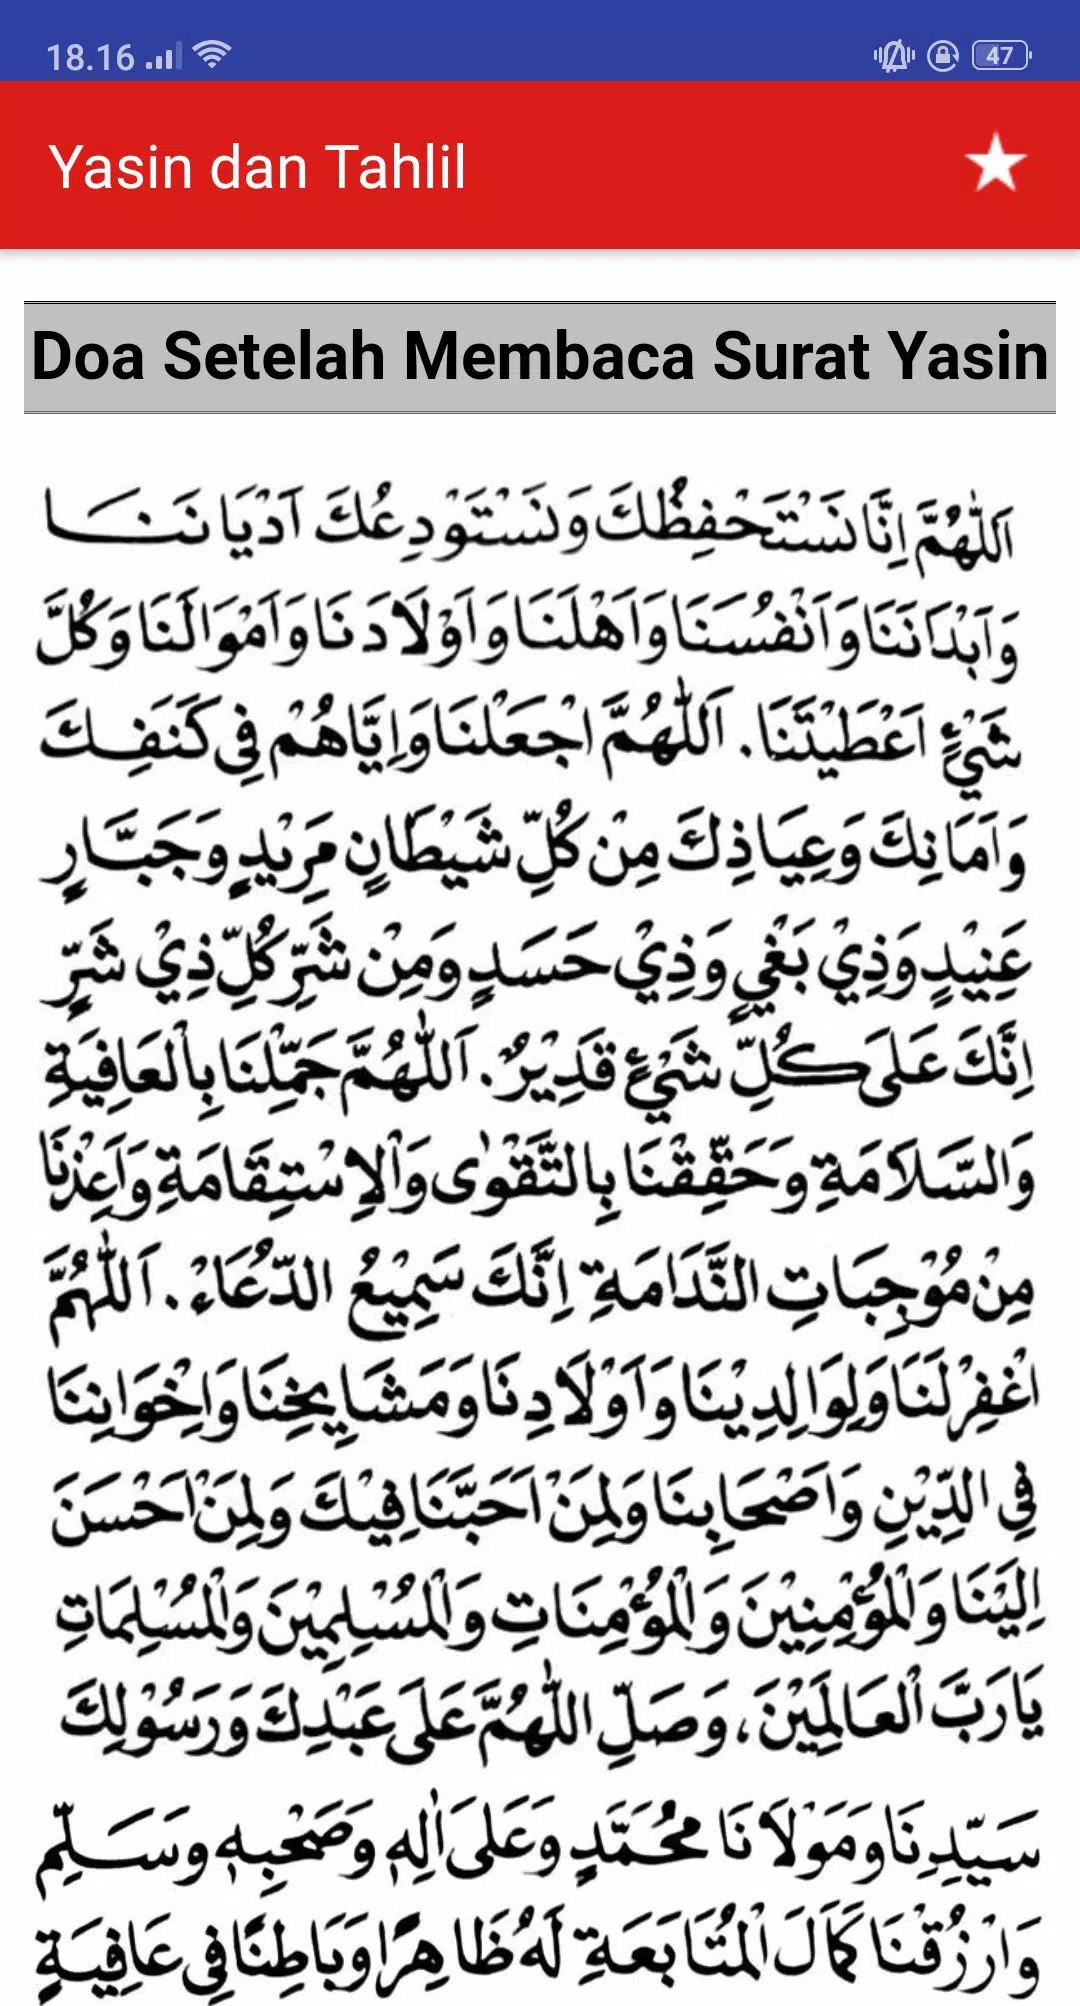 18.16
47
Yasin dan Tahlil
Doa Setelah Membaca Surat Yasin
اَللّٰهُمَّ اِنَّا نَسْتَحْفِظُكَ وَنَسْتَوْدِعُكَ اَدْيَانَنَا
وَاَبْدَانَنَا وَاَنْفُسَنَا وَاَهْلَنَا وَاَوْلَادَنَا وَاَمْوَالَنَا وَكُلَّ
شَيْءٍ اَعْطَيْتَنَا. اَللّٰهُمَّ اجْعَلْنَا وَاِيَّاهُمْ فِي كَنَفِكَ
وَاَمَانِكَ وَعِيَاذِكَ مِنْ كُلِّ شَيْطَانٍ مَرِيْدٍ وَجَبَّارٍ
عَنِيْدٍ وَذِيْ بَغْيٍ وَذِيْ حَسَدٍ وَمِنْ شَرِّ كُلِّ ذِيْ شَرٍّ
اِنَّكَ عَلَى كُلِّ شَيْءٍ قَدِيْرٌ. اَللّٰهُمَّ جَمِّلْنَا بِالْعَافِيَةِ
وَالسَّلَامَةِ وَحَقِّقْنَا بِالتَّقْوٰى وَالْاِسْتِقَامَةِ وَاَعِذْنَا
مِنْ مُوْجِبَاتِ النَّدَامَةِ اِنَّكَ سَمِيْعُ الدُّعَاءْ. اَللّٰهُمَّ
اغْفِرْ لَنَا وَلِوَالِدِيْنَا وَاَوْلَادِنَا وَمَشَايِخِنَا وَاِخْوَانِنَا
فِي الدِّيْنِ وَاَصْحَابِنَا وَلِمَنْ اَحَبَّنَا فِيْكَ وَلِمَنْ اَحْسَنَ
اِلَيْنَا وَالْمُؤْمِنِيْنَ وَالْمُؤْمِنَاتِ وَالْمُسْلِمِيْنَ وَالْمُسْلِمَاتِ
يَارَبَّ الْعَالَمِيْنَ، وَصَلِّ اللّٰهُمَّ عَلَى عَبْدِكَ وَرَسُوْلِكَ
سَيِّدِنَا وَمَوْلَانَا مُحَمَّدٍ وَعَلَى اٰلِهِ وَصَحْبِهِ وَسَلِّمْ
وَارْزُقْنَا كَمَالَ الْمُتَابَعَةِ لَهُ ظَاهِرًا وَبَاطِنًا فِي عَافِيَةٍ